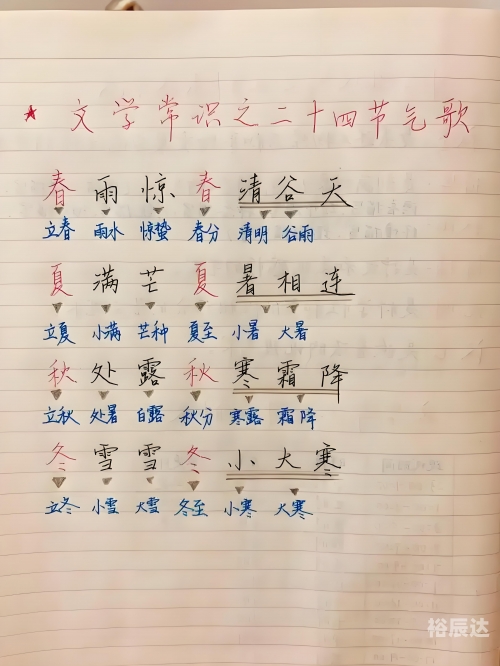 ★ 文学常识之二十四节气歌
春雨惊春清谷天
立春 雨水 惊蛰 春分 清明 谷雨
夏满芒夏暑相连
立夏 小满 芒种 夏至 小暑 大暑
秋处露秋寒霜降
立秋 处暑 白露 秋分 寒露 霜降
冬雪雪冬小大寒
立冬 小雪 大雪 冬至 小寒 大寒
裕辰达